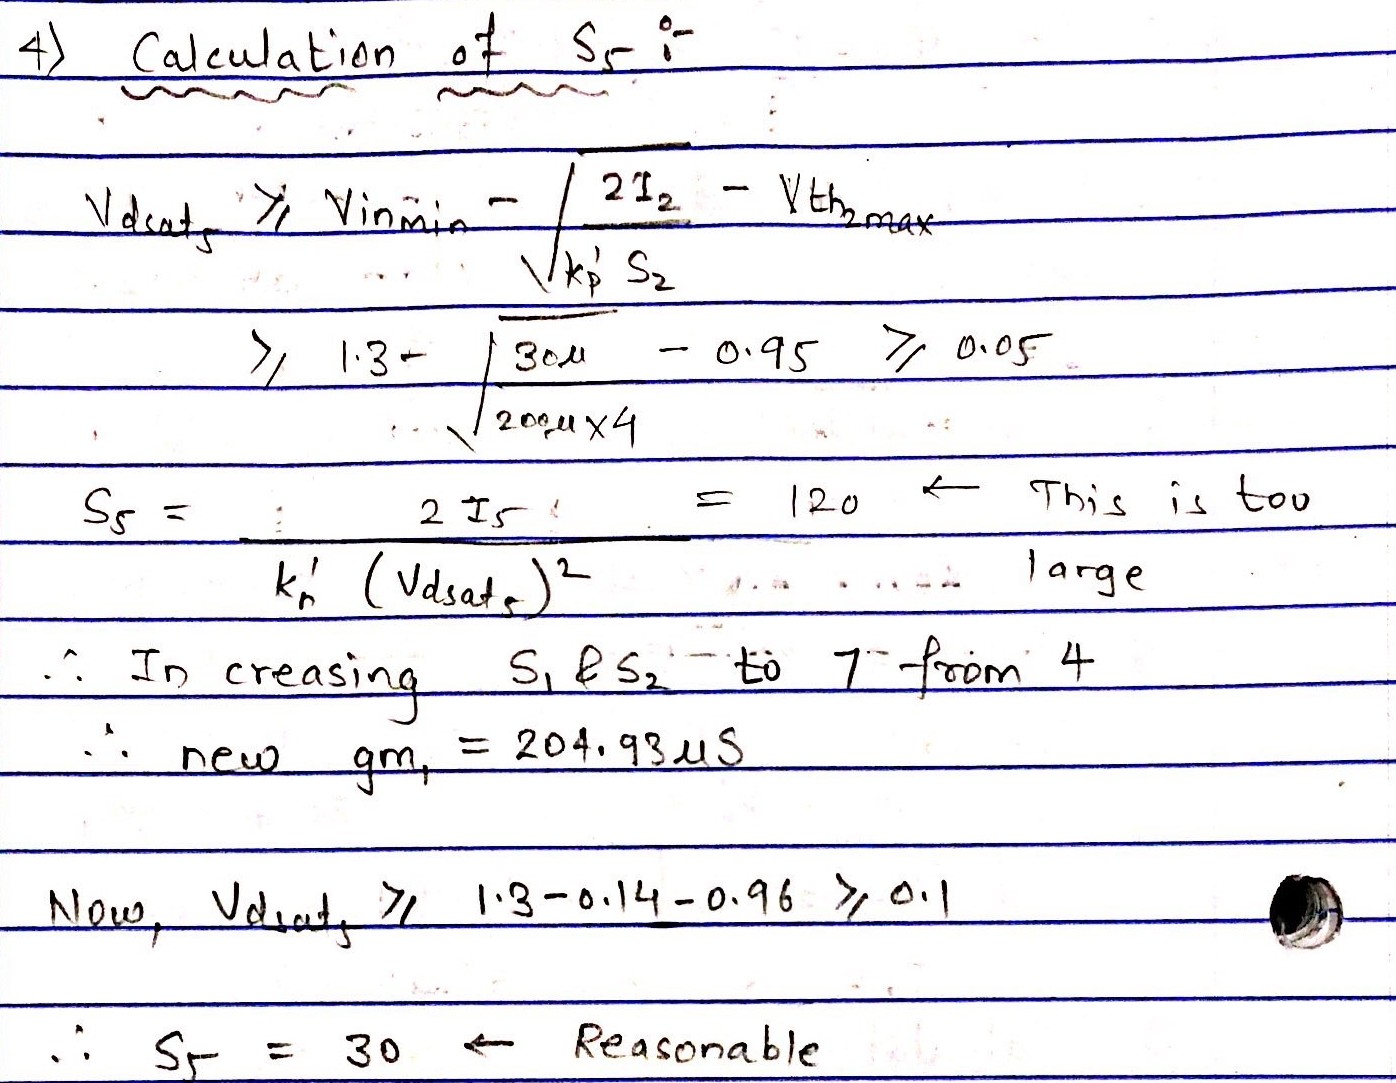 4) Calculation of S5 :-
Vdsat5 ≥ Vinmin - √(2I2 / kp' S2) - Vth2max
≥ 1.3 - √(30u / 200u x 4) - 0.95 ≥ 0.05
S5 = 2I5 / kn' (Vdsat5)² = 120 ← This is too
large
∴ In creasing S1 & S2 to 7 from 4
∴ new gm1 = 204.93 uS
Now, Vdsat5 ≥ 1.3 - 0.14 - 0.96 ≥ 0.1
∴ S5 = 30 ← Reasonable